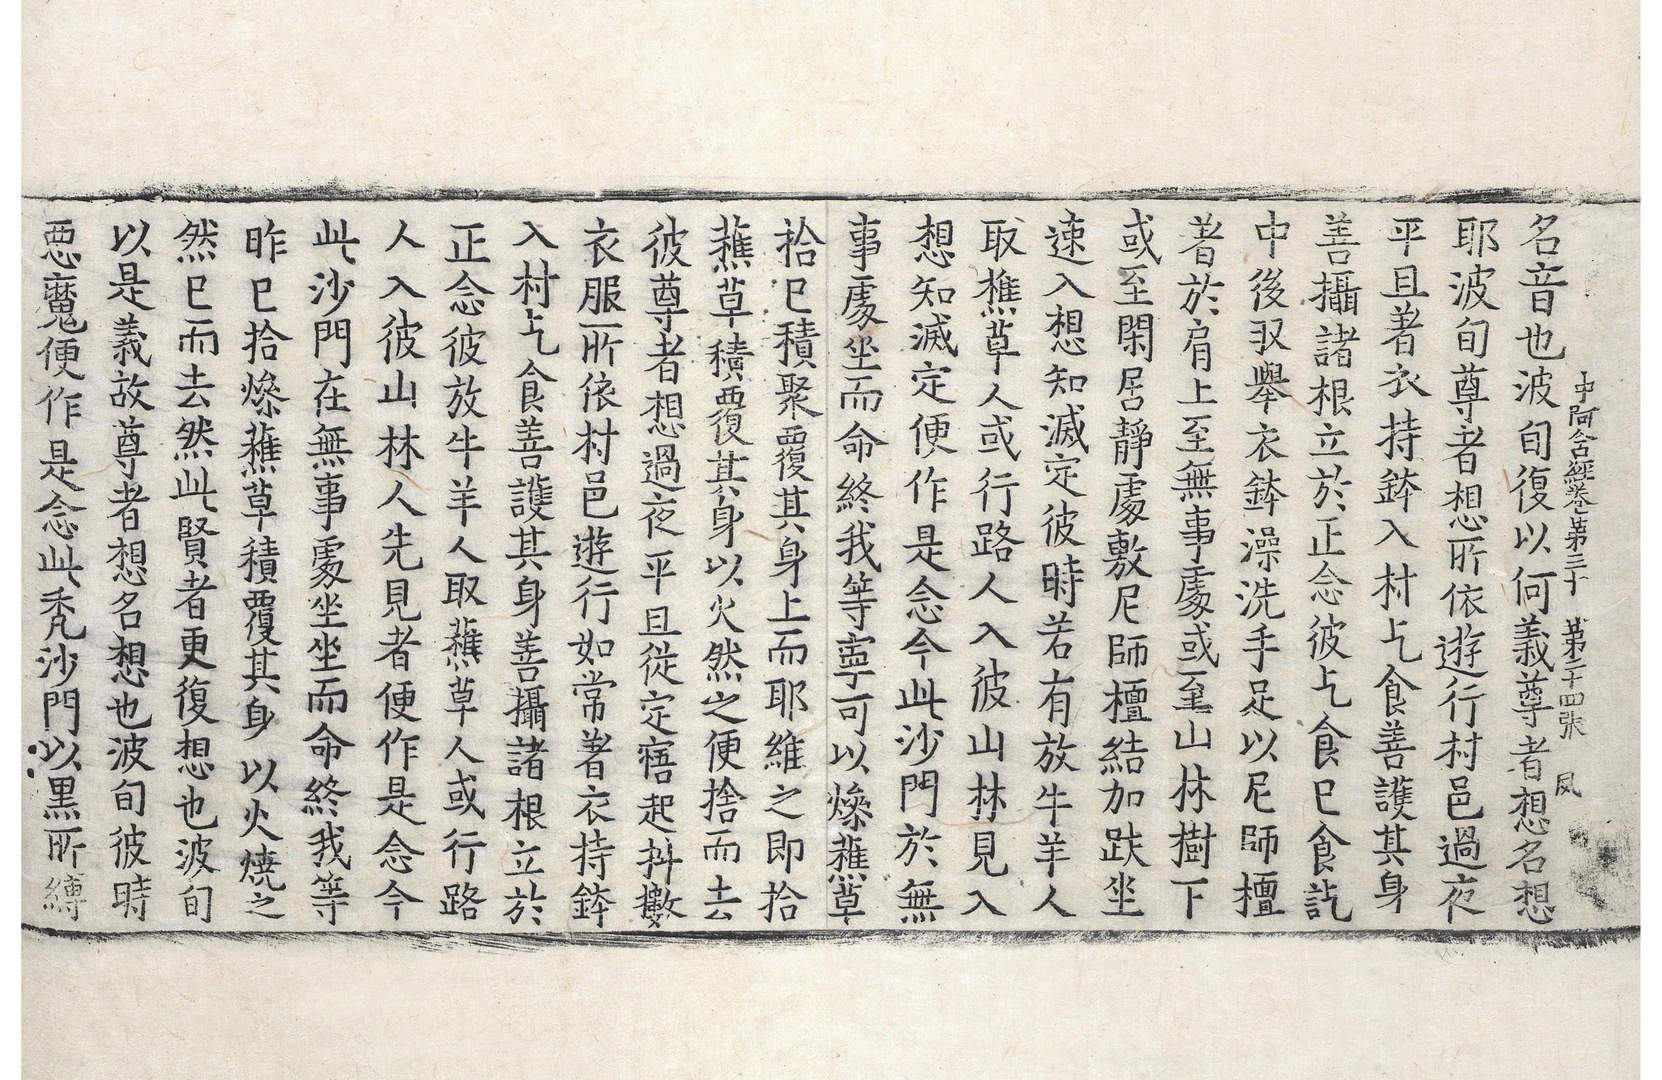 中阿含經卷第三十 第二十四張 凤
名音也波旬復以何義尊者想名想
耶波旬尊者想所依遊行村邑過夜
平旦著衣持鉢入村乞食善護其身
善攝諸根立於正念彼乞食已食訖
中後収舉衣鉢澡洗手足以尼師檀
著於肩上至無事處或至山林樹下
或至閑居靜處敷尼師檀結加趺坐
速入想知滅定彼時若有放牛羊人
取樵草人或行路人入彼山林見入
想知滅定便作是念今此沙門於無
事處坐而命終我等寧可以燥蕉草
拾已積聚覆其身上而耶維之即拾
蕉草積覆其身以火然之便捨而去
彼尊者想過夜平旦從定寤起抖擻
衣服所依村邑遊行如常著衣持鉢
入村乞食善護其身善攝諸根立於
正念彼放牛羊人取蕉草人或行路
人入彼山林人先見者便作是念今
此沙門在無事處坐坐而命終我等
昨已拾燥蕉草積覆其身以火燒之
然已而去然此賢者更復想也波旬
以是義故尊者想名想也波旬彼時
惡魔便作是念此禿沙門以黑所縛